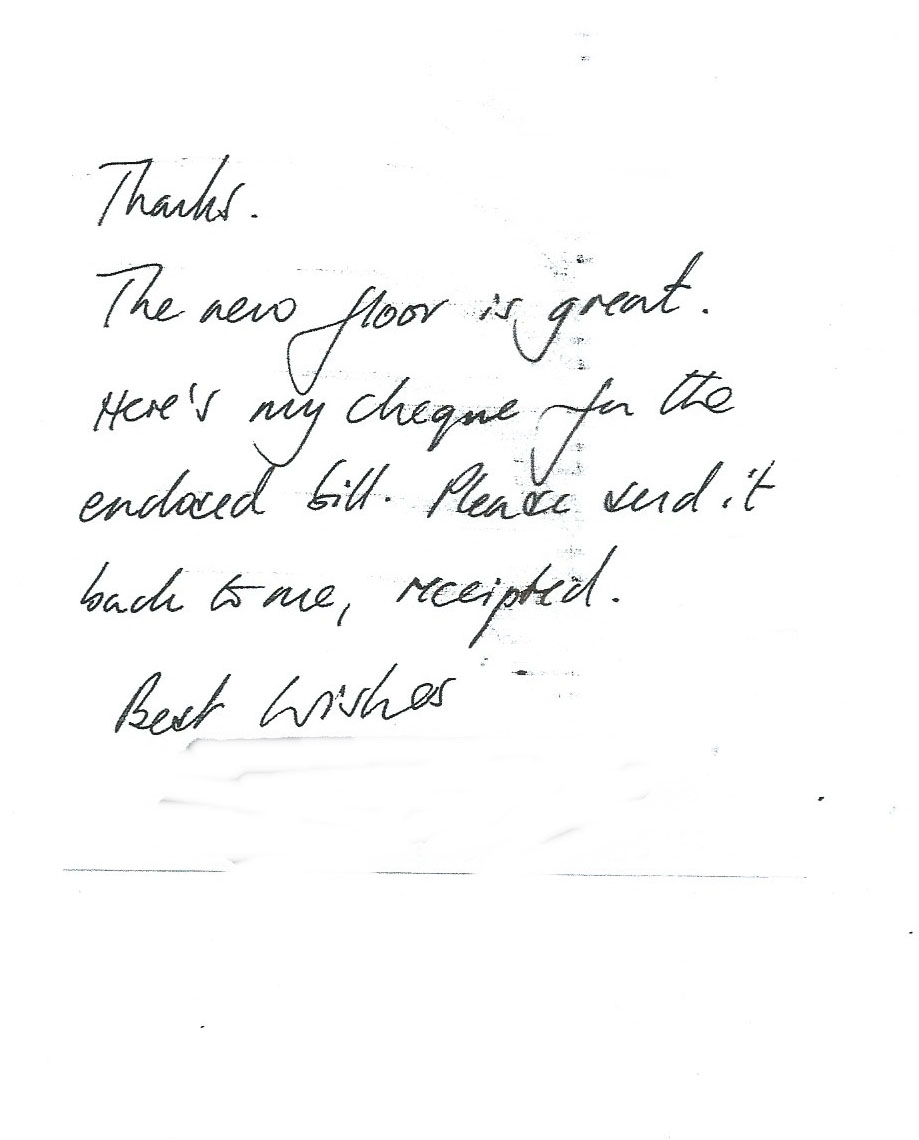 Thanks.
The new floor is great.
Here's my cheque for the
enclosed bill. Please send it
back to me, receipted.
Best Wishes